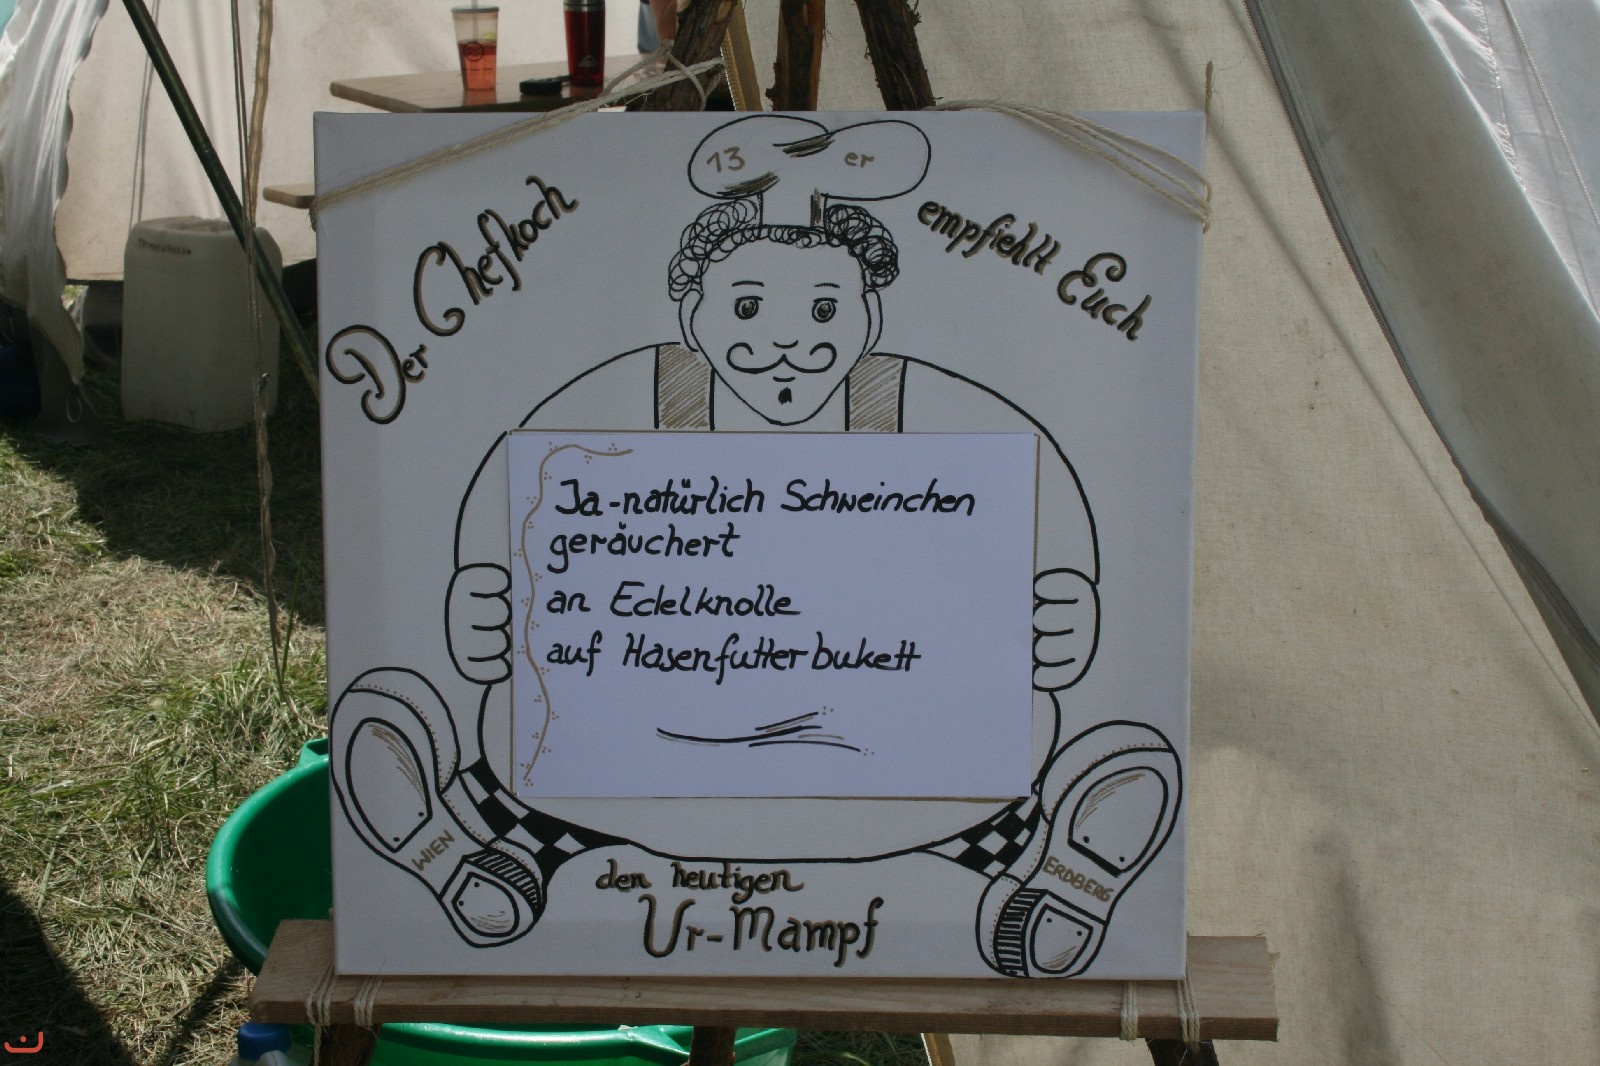 13 er
Der Chefkoch
empfiehlt Euch
Ja-natürlich Schweinchen
geräuchert
an Edelknolle
auf Hasenfutterbukett
WIEN
ERDBERG
den heutigen
Ur-Mampf